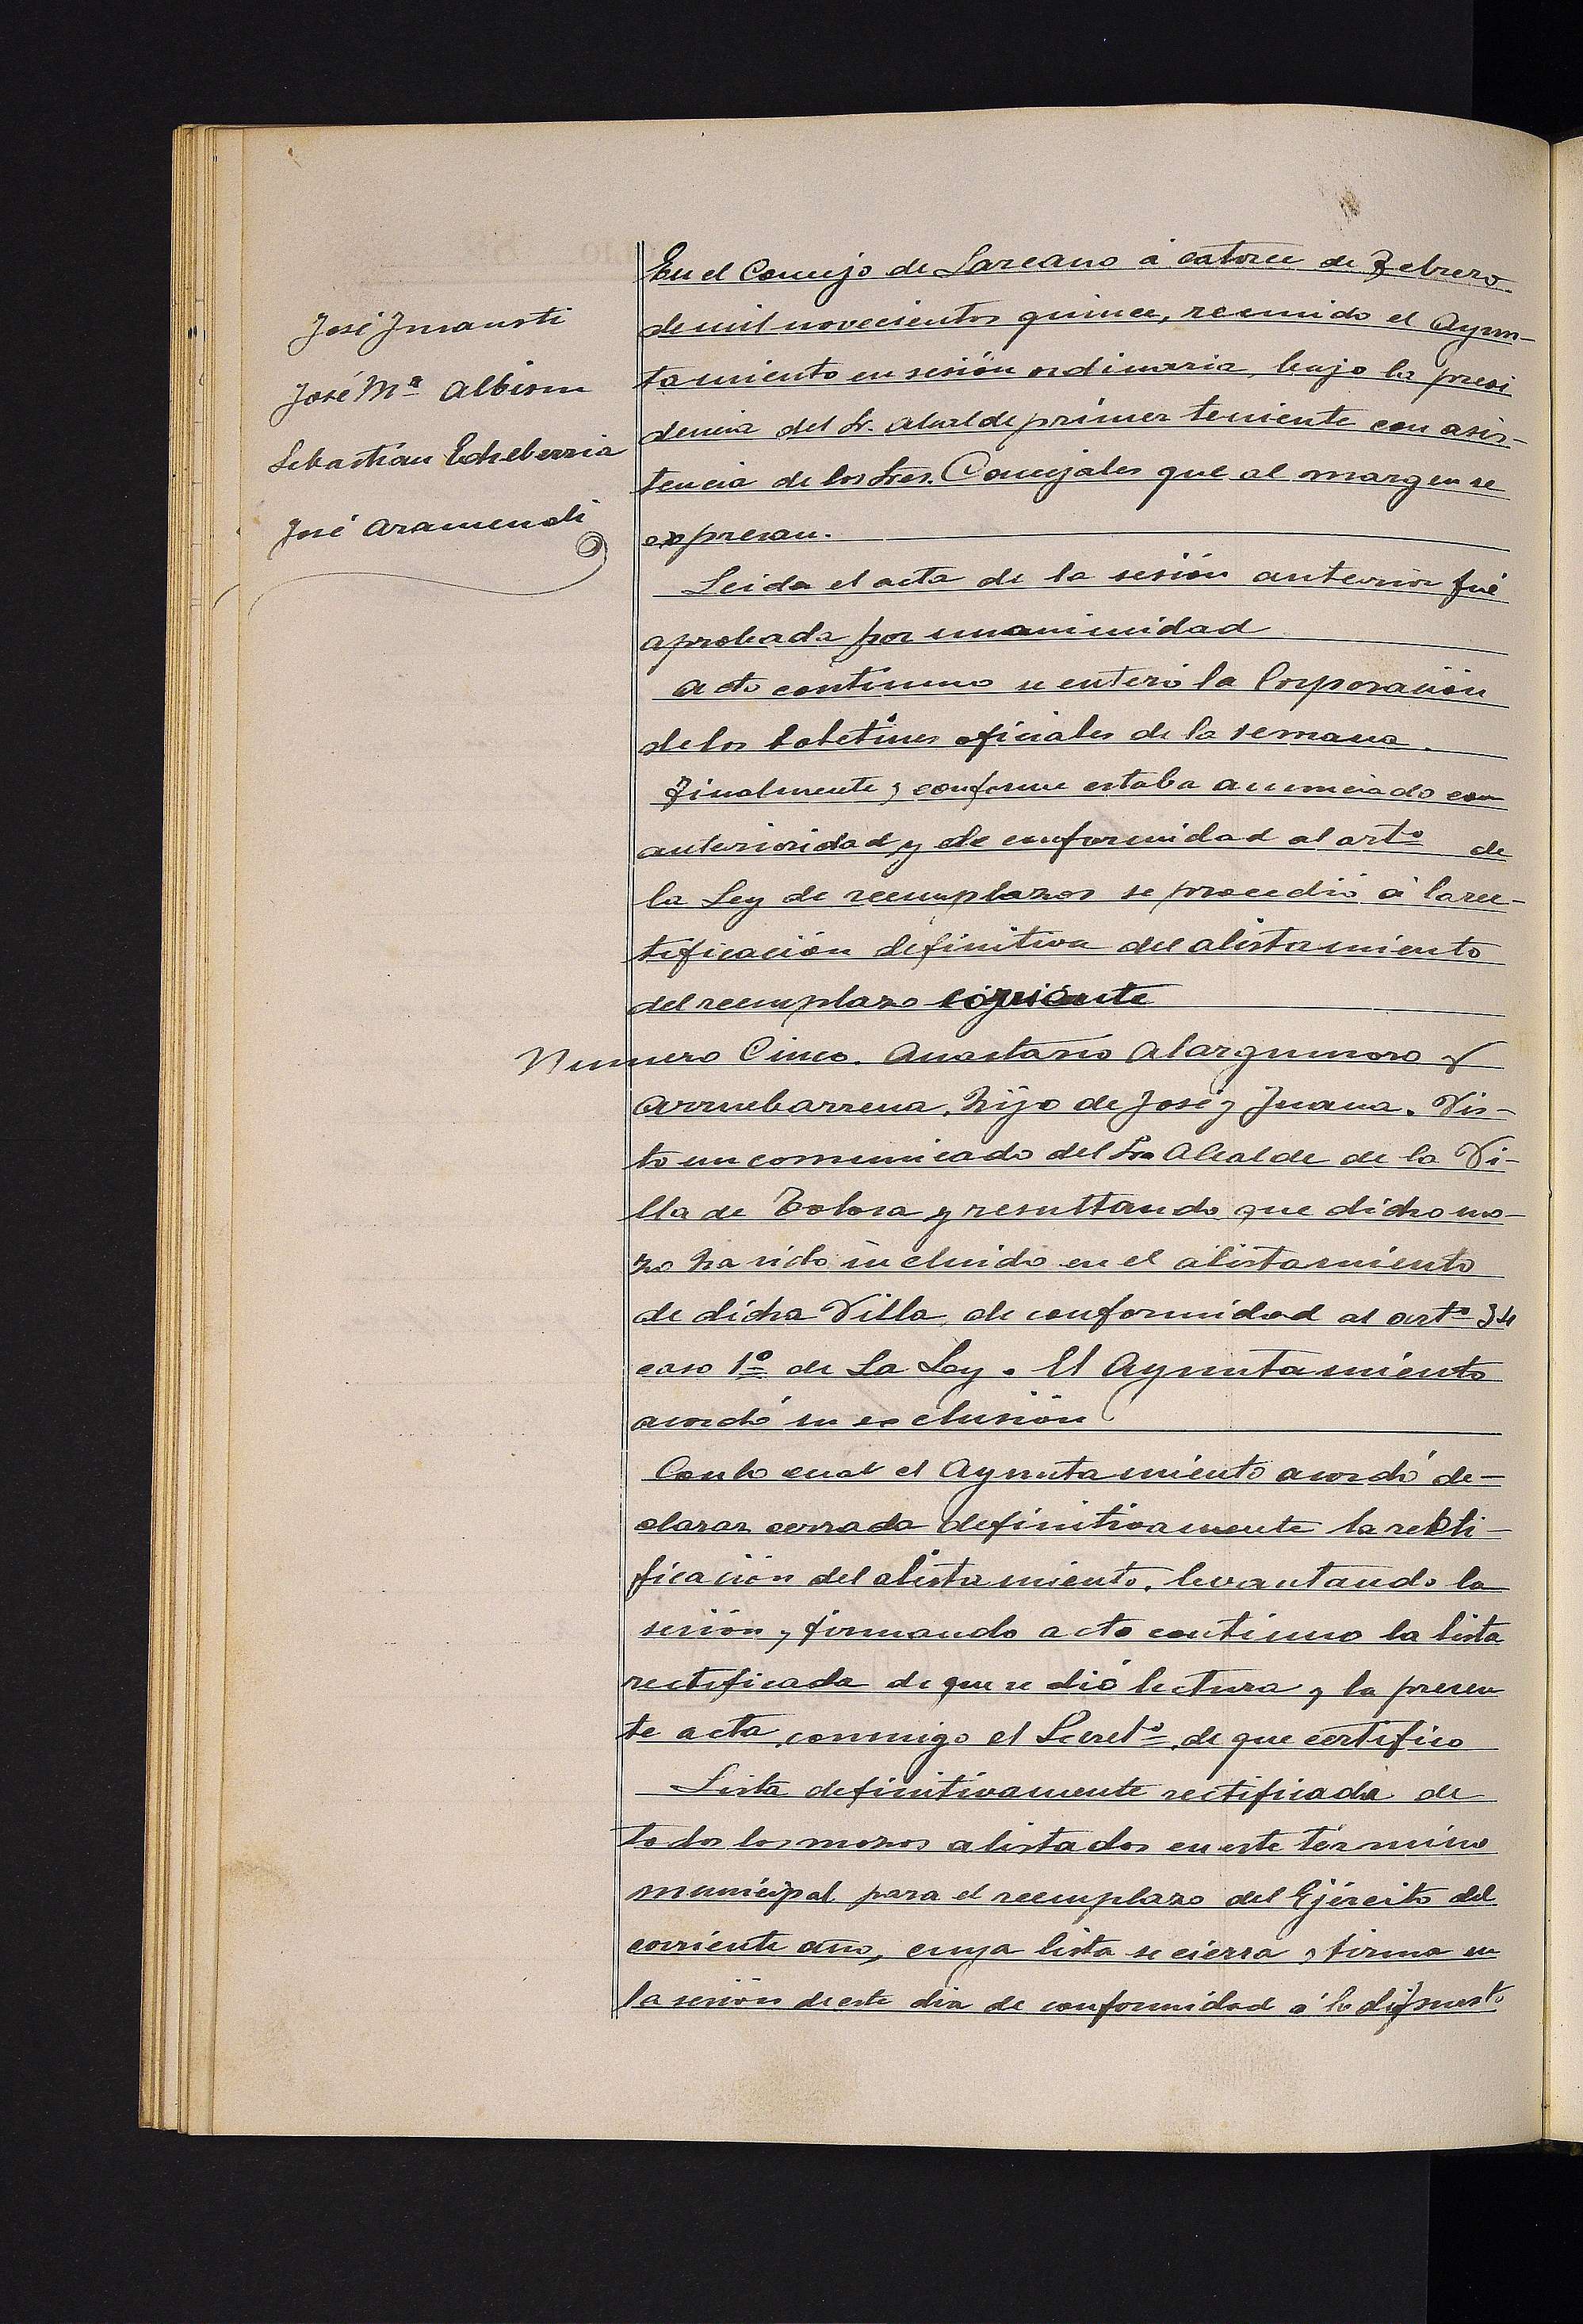 José Imausti
José Mª Albisu
Sebastián Echeberria
José Aramendi
En el Concejo de Lazcano á catorce de Febrero
de mil novecientos quince, reunido el Ayun-
tamiento en sesión ordinaria, bajo la presi
dencia del Sr. Alcalde primer teniente con asis-
tencia de los Sres. Concejales que al margen se
expresan.
Leida el acta de la sesión anterior fué
aprobada por unanimidad
Acto continuo se enteró la Corporación
de los boletines oficiales de la semana.
Finalmente y conforme estaba anunciado con
anterioridad y de conformidad al artº de
la Ley de reemplazos se procedió á la rec-
tificación definitiva del alistamiento
del reemplazo corriente
Numero Cinco. Anastasio Alargunsoro y
Arruebarrena, hijo de José y Juana. Vis-
to un comunicado del Sor Alcalde de la Vi-
lla de Tolosa y resultando que dicho mo-
zo ha sido incluido en el alistamiento
de dicha Villa, de conformidad al artº 34
caso 1º de La Ley. El Ayuntamiento
acordó su exclusión
Con lo cual el Ayuntamiento acordó de-
clarar cerrada definitivamente la recti-
ficación del alistamiento, levantando la
sesión y firmando acto continuo la lista
rectificada de que se dió lectura y la presen
te acta, conmigo el Secretº, de que certifico
Lista definitivamente rectificada de
todos los mozos alistados en este término
municipal para el reemplazo del Ejército del
corriente año, cuya lista se cierra y firma en
la sesión de este dia de conformidad á lo dispuesto